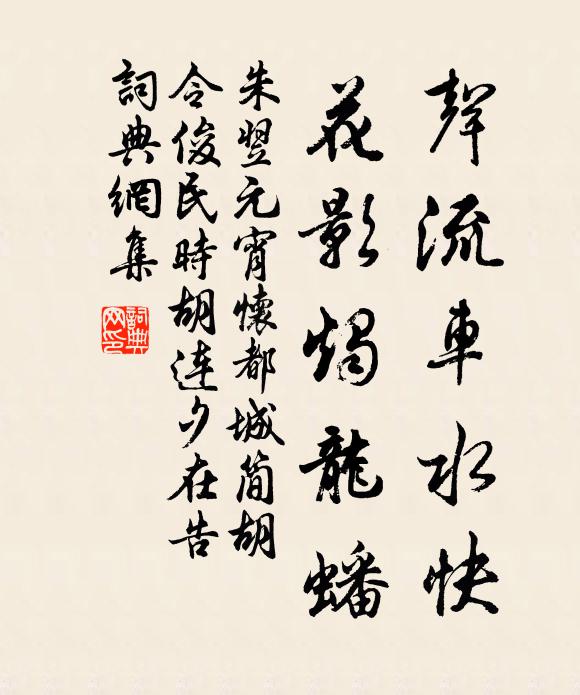 聲流車水快
花影燭龍蟠
朱翌元宵懷都城簡胡
令俊民時胡連夕在告
詞典網集
詞典
网印